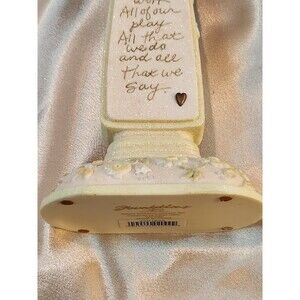 work
All of our
play
All that
we do
and all
that we
say.
Foundations